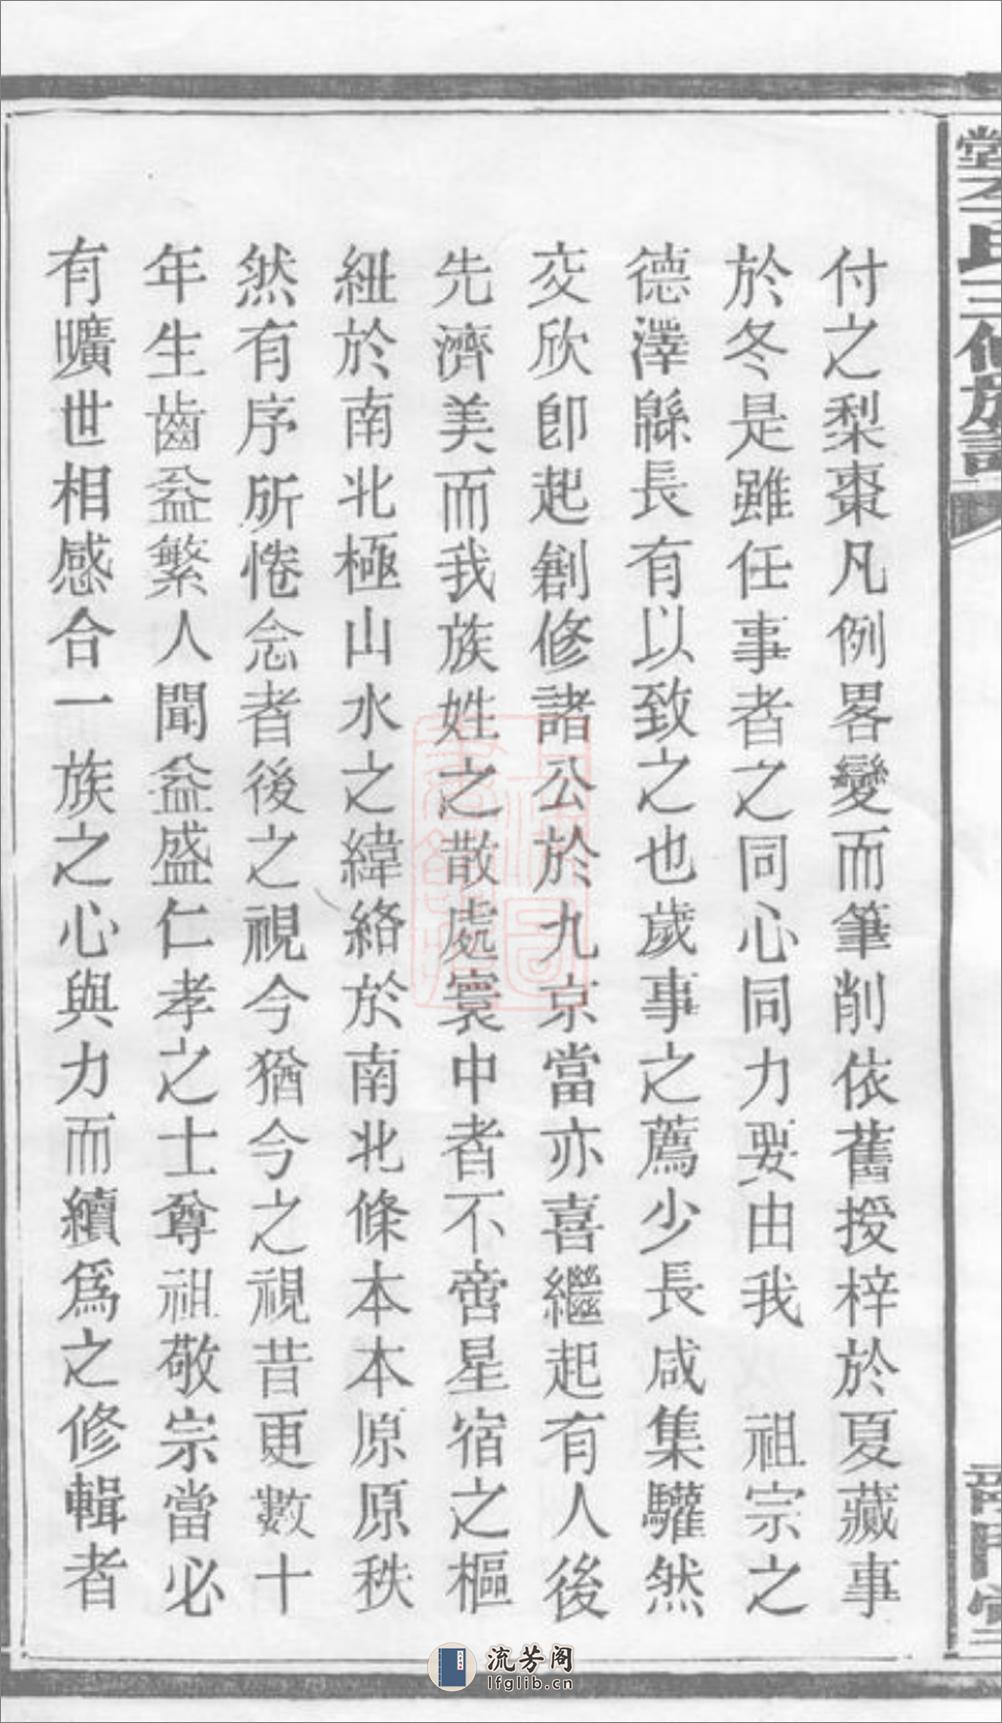 付之梨棗凡例畧變而筆削依舊授梓於夏藏事
於冬是雖任事者之同心同力要由我　祖宗之
德澤緜長有以致之也歲事之薦少長咸集驩然
交欣卽起創修諸公於九京當亦喜繼起有人後
先濟美而我族姓之散處寰中者不啻星宿之樞
紐於南北極山水之緯絡於南北條本本原原秩
然有序所惓念者後之視今猶今之視昔更數十
年生齒益繁人聞益盛仁孝之士尊祖敬宗當必
有曠世相感合一族之心與力而續爲之修輯者
流芳阁
lfglib.cn